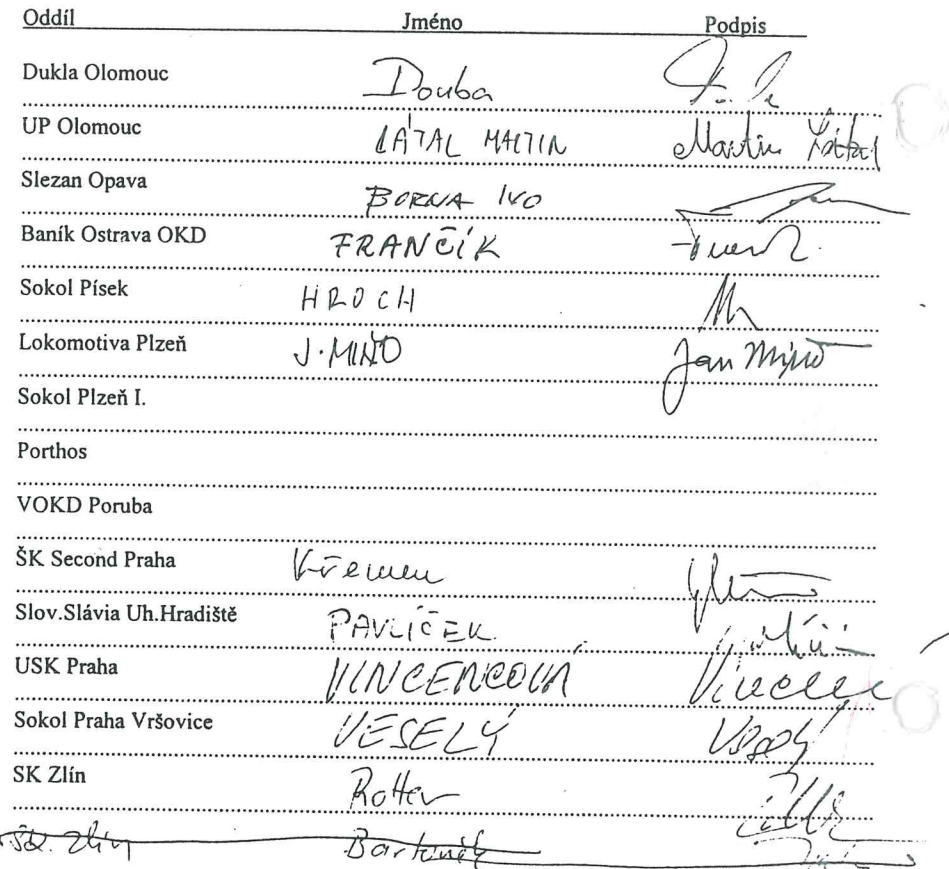 Oddíl Jméno Podpis
Dukla Olomouc Douba
UP Olomouc LÁTAL MARTIN Martin Látal
Slezan Opava BORNA IVO
Baník Ostrava OKD FRANČÍK
Sokol Písek HROCH
Lokomotiva Plzeň J. MIŇO Jan Miňo
Sokol Plzeň I.
Porthos
VOKD Poruba
ŠK Second Praha Křemen
Slov.Slávia Uh.Hradiště PAVLÍČEK
USK Praha VINCENCOVÁ
Sokol Praha Vršovice VESELÝ Veselý
SK Zlín Rotter